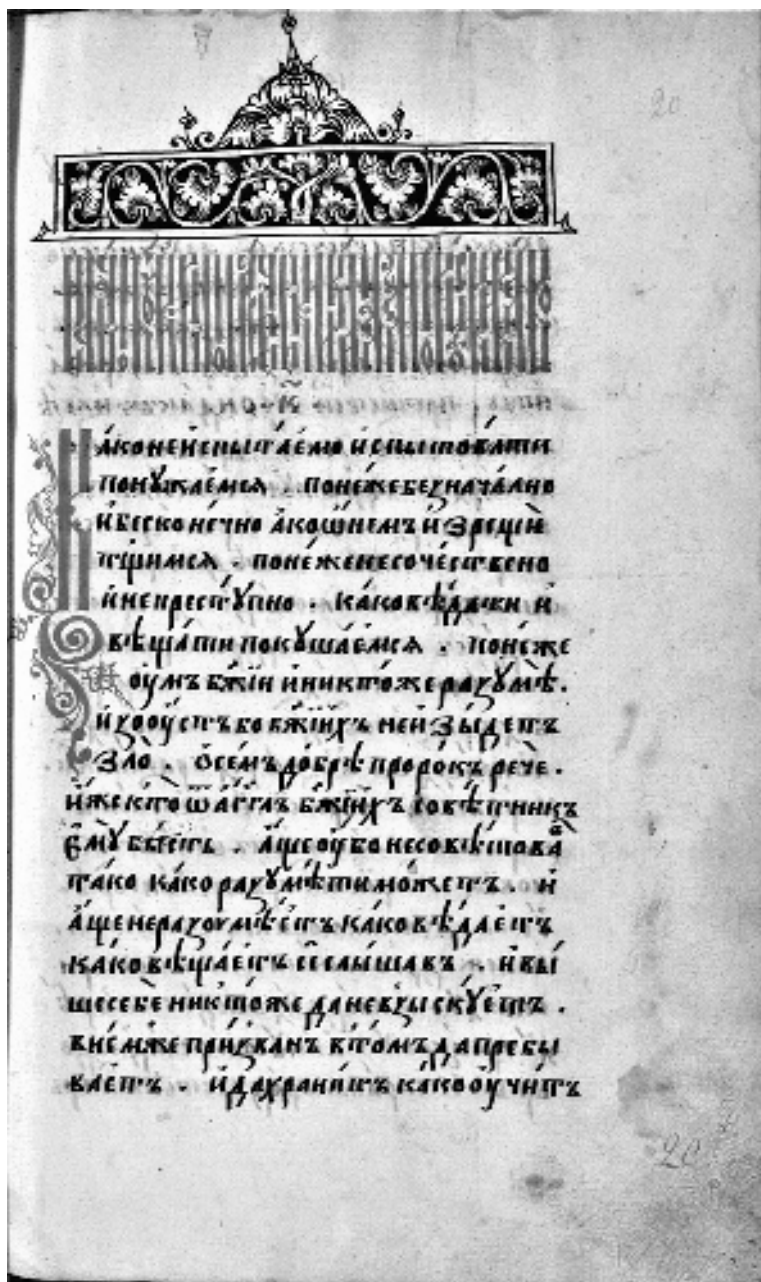 20
ꙗ҆́ко неи҆спыта́емо и҆спытовати
пону́жаемсѧ . поне́же безнача́лно
и҆ бесконе́чно ꙗ҆́ко ѡ҆ нем̾ и҆зрещи
тщи́мсѧ . поне́же несоче́ствено
и҆ непристу́пно . ка́ко вѣ́дати и҆
вѣща́ти покуша́емсѧ . поне́же
оу҆́мъ бж҃їи и҆ никто́же разумѣ̀ .
и҆зо оу҆́стъ бо бж҃їихъ не и҆зы́детъ
ѕло̀ . ѡ҆ се́мъ до́брѣ проро́къ речѐ .
и҆́же кто̀ ѿ а҆гг҃лъ бж҃їихъ совѣ́тникъ
є҆мꙋ̀ бы́сть . а҆́ще оу҆́бо не совѣ́това
та́ко ка́ко разумѣ́ти мо́жетъ . и҆
а҆́ще не разоумѣ́етъ ка́ко вѣ́даетъ
ка́ко вѣща́етъ слы́шавъ . и҆ вы́
ше себѐ никто́же да не взыску́етъ .
в не́мже при́званъ в то́мъ да пребы
ва́етъ . и҆ да храни́тъ ка́ко оу҆чи́тъ
20